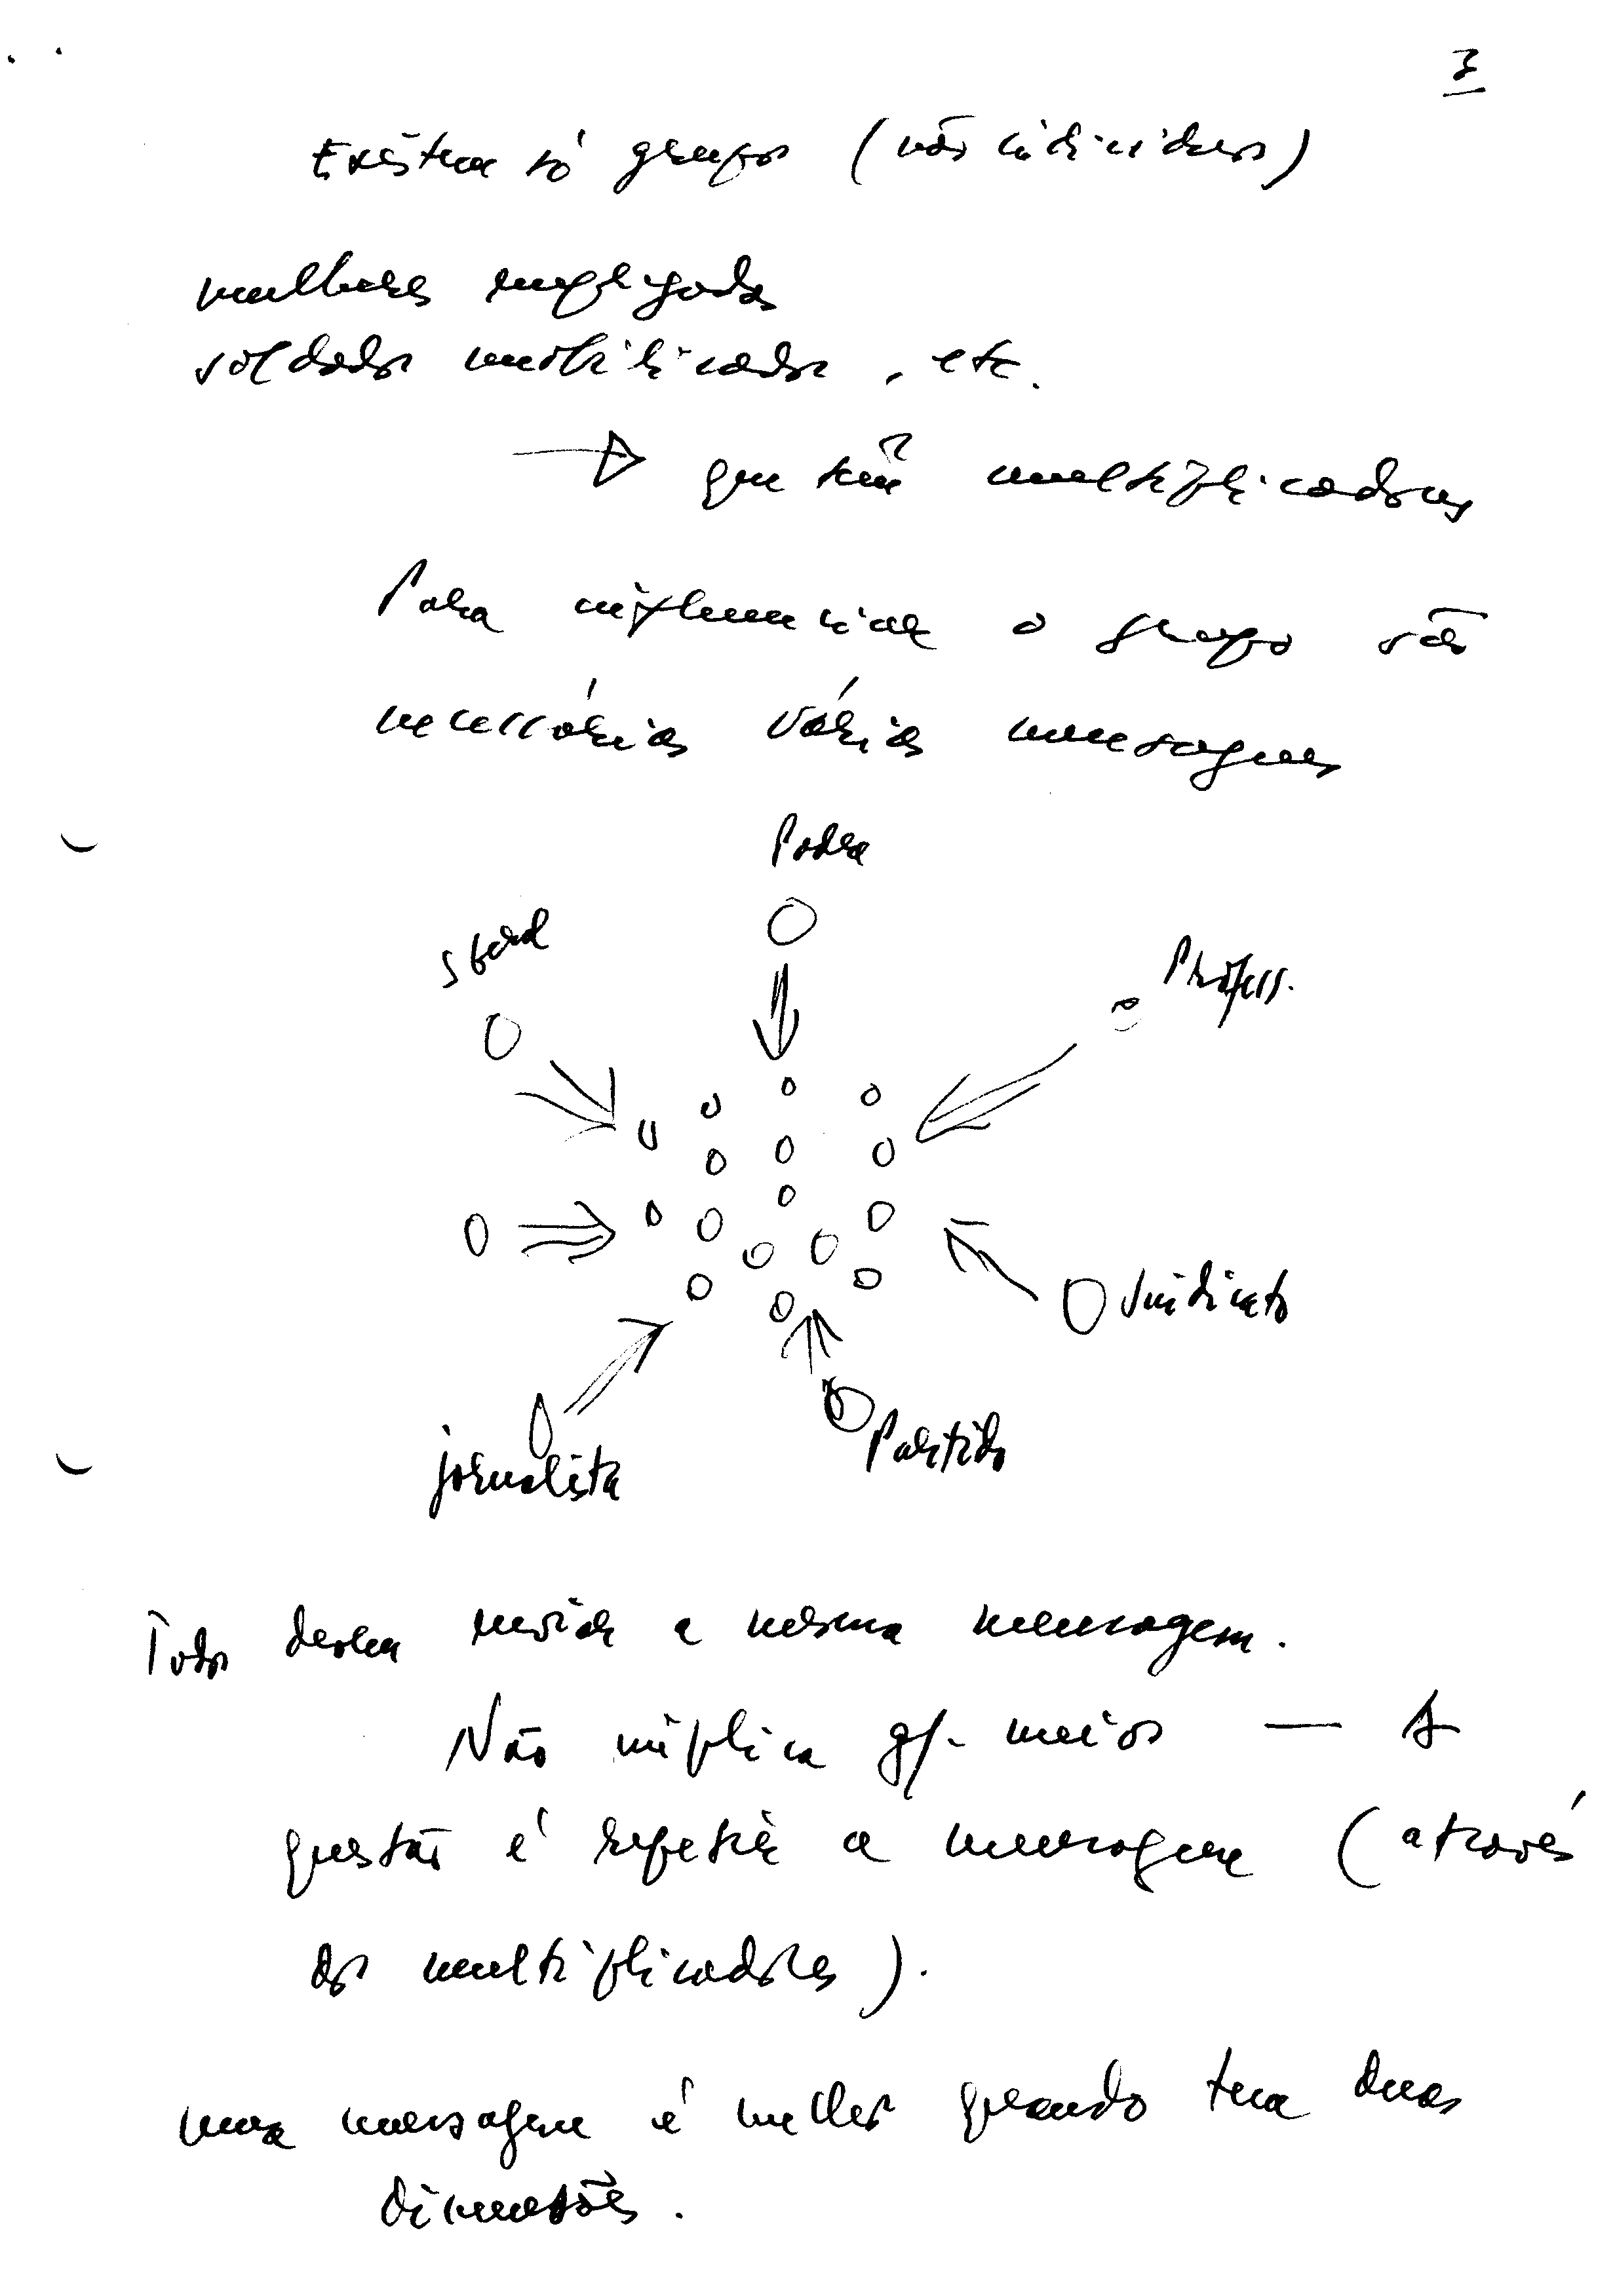 3
Existem só grupos (não individuos)
mulheres empregadas
soldados mobilizados, etc.
que têm multiplicadores
Para influenciar o grupo são
necessárias várias mensagens
Padre
Profess.
Sindicato
Partido
jornalista
Todos devem enviar a mesma mensagem.
Não implica gr. meios — A
questão é repetir a mensagem (através
dos multiplicadores).
uma mensagem é melhor quando tem duas
dimensões.